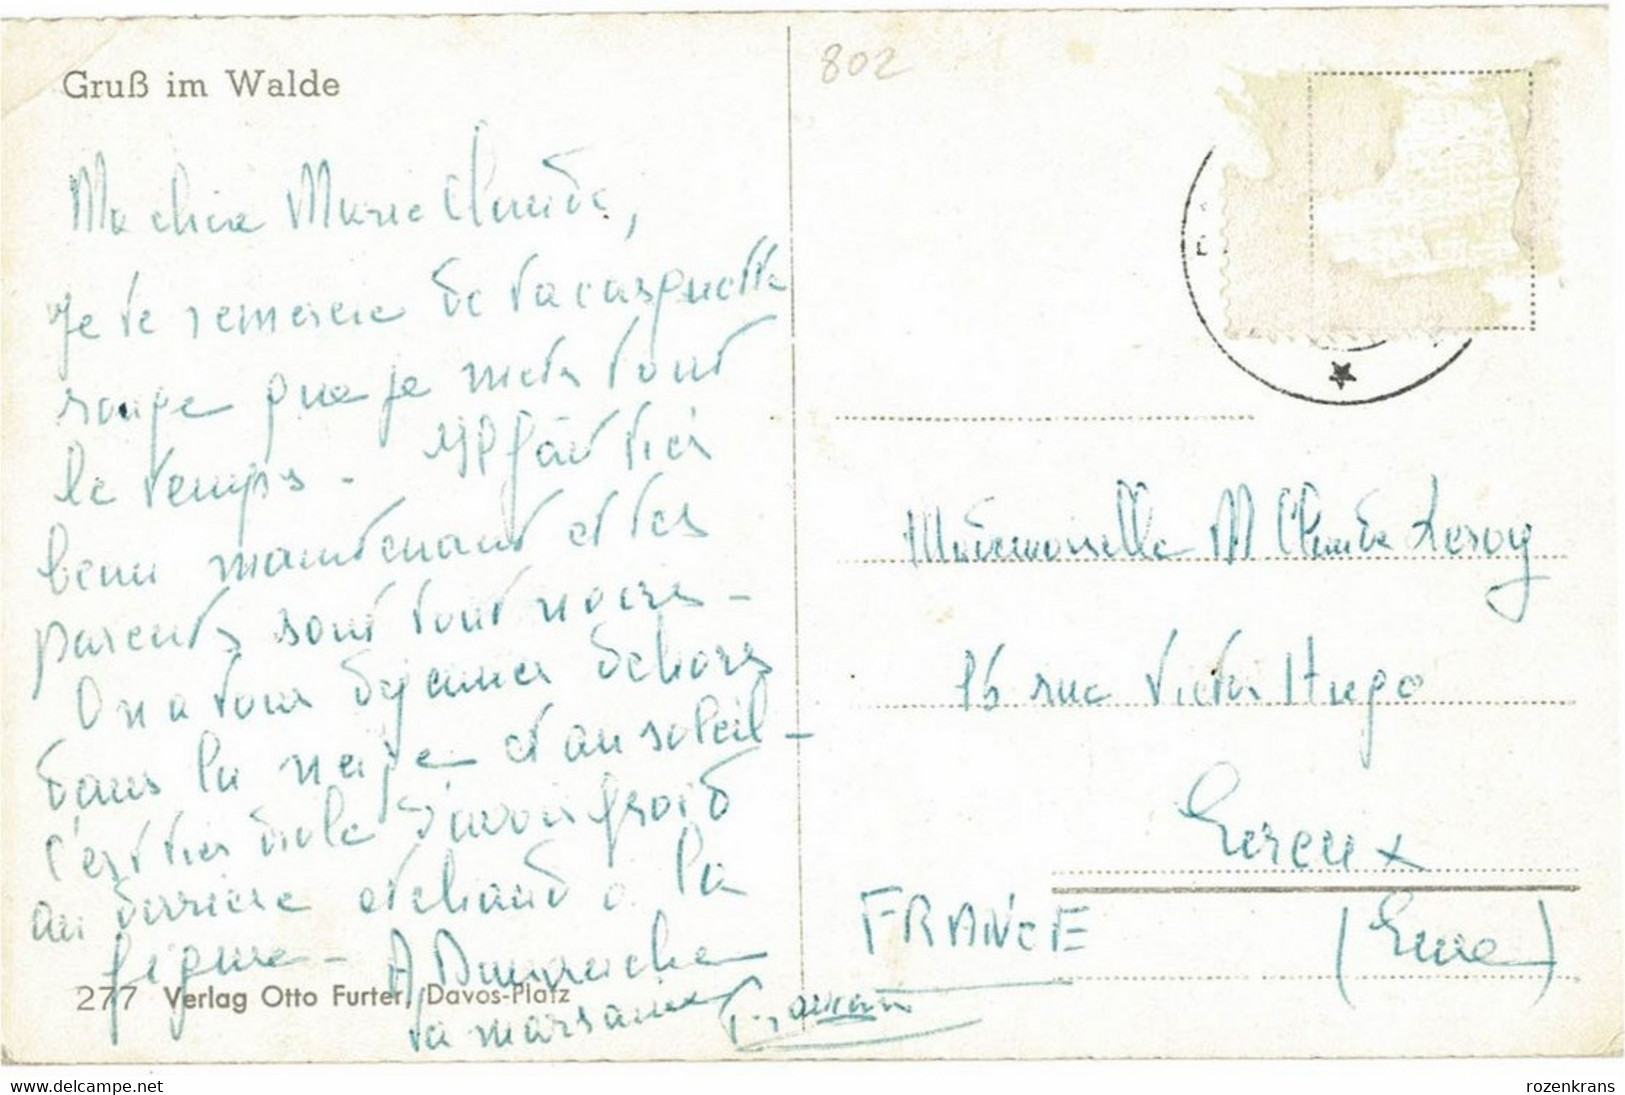 Gruß im Walde
802
Ma chère Marie Claude,
Je te remercie de ta casquette
rouge que je mets tout
le temps - Il fait très
beau maintenant et tes
parents sont tout noirs -
On a tous déjeuner dehors
dans la neige et au soleil -
c'est très drole d'avoir froid
au derriere et chaud a la
figure - A Dimanche
ta marraine
277 Verlag Otto Furter, Davos-Platz
Mademoiselle M Claude Leroy
16 rue Victor Hugo
Evreux
FRANCE
(Eure)
www.delcampe.net
rozenkrans